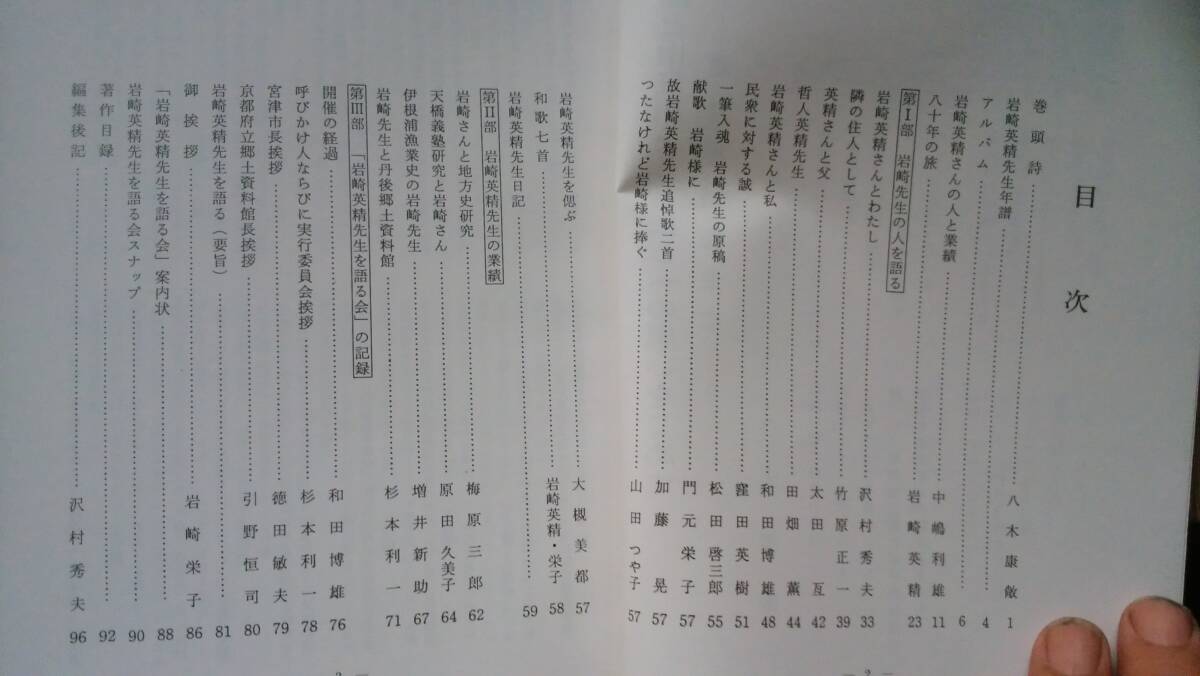 目次
巻頭詩……八木康敞 1
岩崎英精先生年譜……4
アルバム……6
岩崎英精さんの人と業績……中嶋利雄 11
八十年の旅……岩崎英精 23
第Ⅰ部 岩崎先生の人を語る
岩崎英精さんとわたし……沢村秀夫 33
隣の住人として……竹原正一 39
英精さんと父……太田亙 42
哲人英精先生……田畑薫 44
岩崎英精さんと私……和田博雄 48
民衆に対する誠……窪田英樹 51
一筆入魂 岩崎先生の原稿……松田啓三郎 55
献歌 岩崎様に……門元栄子 57
故岩崎英精先生追悼歌二首……加藤晃 57
つたなけれど岩崎様に捧ぐ……山田つや子 57
岩崎英精先生を偲ぶ……大槻美都 57
和歌七首……岩崎英精・栄子 58
岩崎英精先生日記……59
第Ⅱ部 岩崎英精先生の業績
岩崎さんと地方史研究……梅原三郎 62
天橋義塾研究と岩崎さん……原田久美子 64
伊根浦漁業史の岩崎先生……増井新助 67
岩崎先生と丹後郷土資料館……杉本利一 71
第Ⅲ部 「岩崎英精先生を語る会」の記録
開催の経過……和田博雄 76
呼びかけ人ならびに実行委員会挨拶……杉本利一 78
宮津市長挨拶……徳田敏夫 79
京都府立郷土資料館長挨拶……引野恒司 80
岩崎英精先生を語る(要旨)……81
御挨拶……岩崎栄子 86
「岩崎英精先生を語る会」案内状……88
岩崎英精先生を語る会スナップ……90
著作目録……92
編集後記……沢村秀夫 96